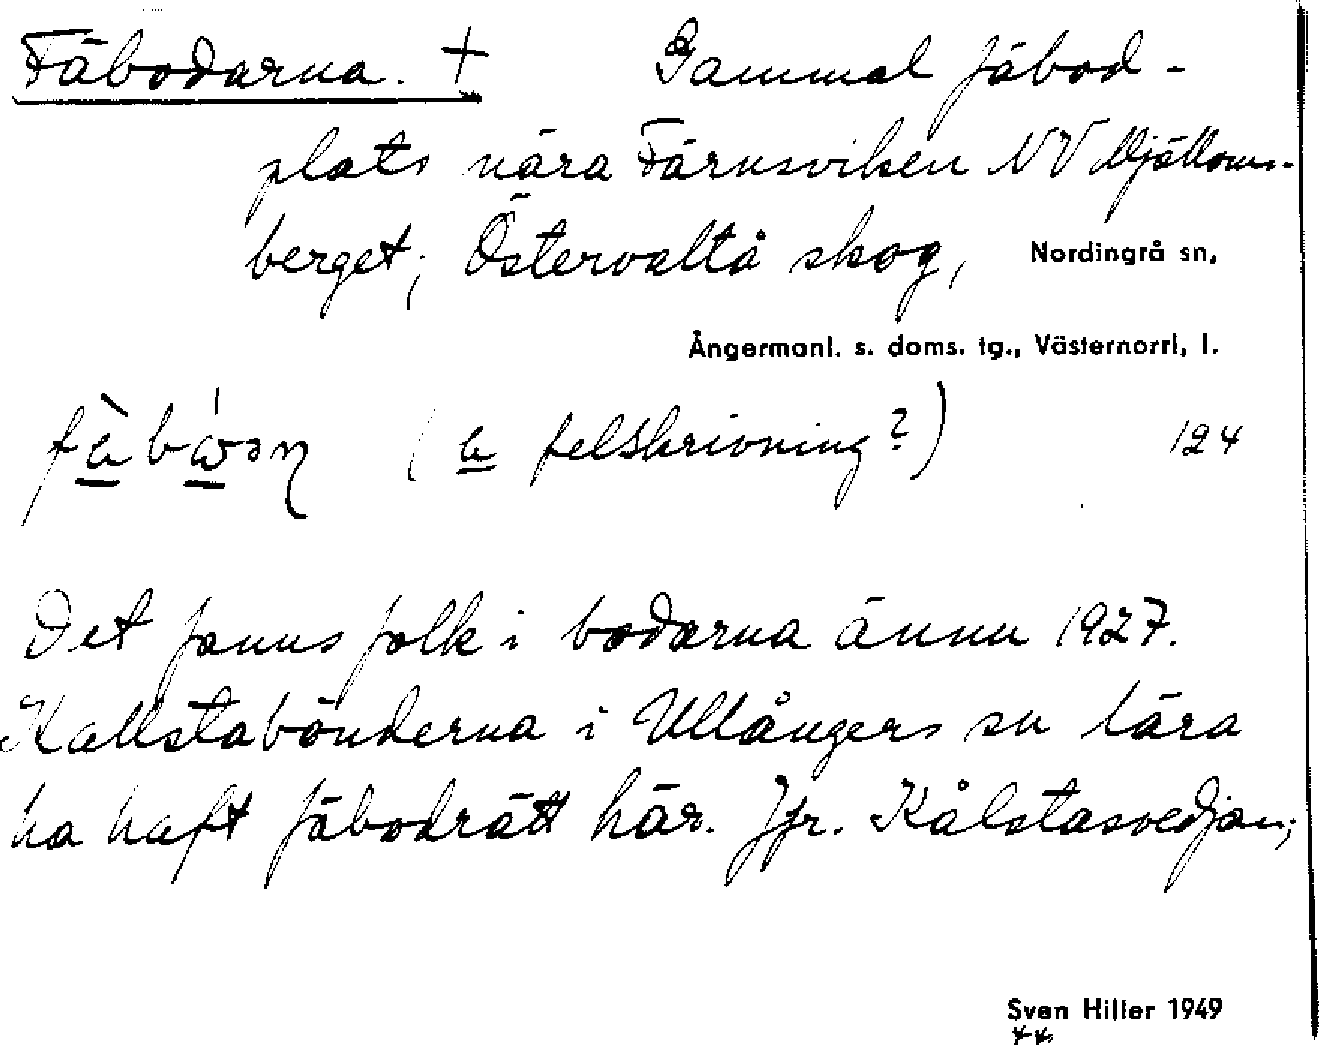 Fäbodarna. + Gammal fäbod-
plats nära Färnsviken NV Mjälloms-
berget; Östervaltå skog, Nordingrå sn,
Ångermanl. s. doms. tg., Västernorrl, l.
(a felskrivning?) 124
Det fanns folk i bodarna ännu 1927.
Kallstabönderna i Ullångers sn lära
ha haft fäbodrätt här. Jfr. Kålstasvedjan;
Sven Hiller 1949